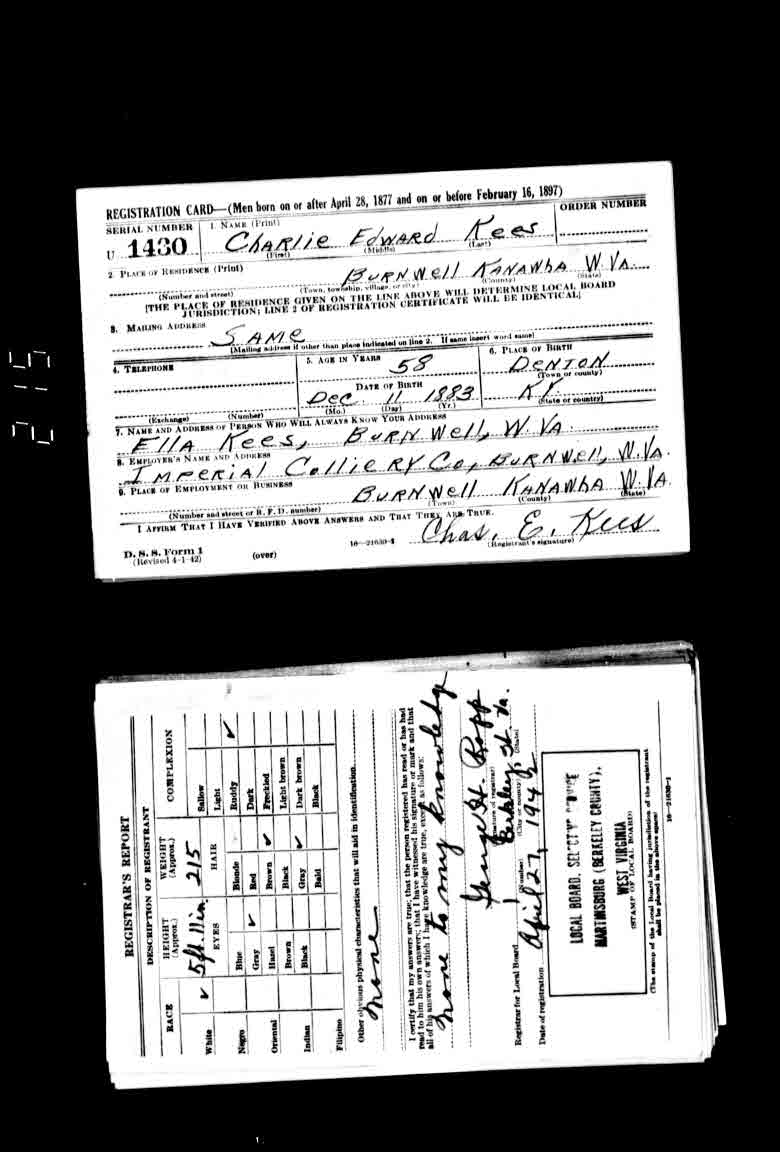 REGISTRATION CARD—(Men born on or after April 28, 1877 and on or before February 16, 1897)
SERIAL NUMBER
1. NAME (Print)
ORDER NUMBER
U 1430
Charlie Edward Kees
(First) (Middle) (Last)
2. PLACE OF RESIDENCE (Print)
Burnwell Kanawha W. Va.
(Number and street) (Town, township, village, or city) (County) (State)
[THE PLACE OF RESIDENCE GIVEN ON THE LINE ABOVE WILL DETERMINE LOCAL BOARD
JURISDICTION; LINE 2 OF REGISTRATION CERTIFICATE WILL BE IDENTICAL]
3. MAILING ADDRESS
Same
[Mailing address if other than place indicated on line 2. If same insert word same]
4. TELEPHONE
5. AGE IN YEARS
58
6. PLACE OF BIRTH
Denton
(Town or county)
DATE OF BIRTH
Dec. 11 1883
Ky.
(Exchange) (Number)
(Mo.) (Day) (Yr.)
(State or country)
7. NAME AND ADDRESS OF PERSON WHO WILL ALWAYS KNOW YOUR ADDRESS
Ella Kees, Burnwell, W. Va.
8. EMPLOYER'S NAME AND ADDRESS
Imperial Colliery Co, Burnwell, W. Va.
9. PLACE OF EMPLOYMENT OR BUSINESS
Burnwell Kanawha W. Va.
(Number and street or R. F. D. number) (Town) (County) (State)
I AFFIRM THAT I HAVE VERIFIED ABOVE ANSWERS AND THAT THEY ARE TRUE.
Chas. E. Kees
D. S. S. Form 1
(Revised 4-1-42)
(over)
16—21630-1
(Registrant's signature)
215
REGISTRAR'S REPORT
DESCRIPTION OF REGISTRANT
RACE
HEIGHT
(Approx.)
WEIGHT
(Approx.)
COMPLEXION
5 ft. 11 in.
215
White ✓
EYES
HAIR
Sallow
Light
Negro
Blue
Blonde
Ruddy ✓
Gray ✓
Red
Dark
Oriental
Hazel
Brown ✓
Freckled
Brown
Black
Light brown
Indian
Black
Gray ✓
Dark brown
Bald
Black
Filipino
Other obvious physical characteristics that will aid in identification
None
I certify that my answers are true; that the person registered has read or has had
read to him his own answers; that I have witnessed his signature or mark and that
all of his answers of which I have knowledge are true, except as follows:
None to my knowledge
George H. Ropp
(Signature of registrar)
Registrar for Local Board
1 Berkeley W. Va.
(Number) (City or county) (State)
Date of registration April 27, 1942
LOCAL BOARD, SELECTIVE SERVICE
MARTINSBURG (BERKELEY COUNTY),
WEST VIRGINIA
(STAMP OF LOCAL BOARD)
(The stamp of the Local Board having jurisdiction of the registrant
shall be placed in the above space)
16—21630-1